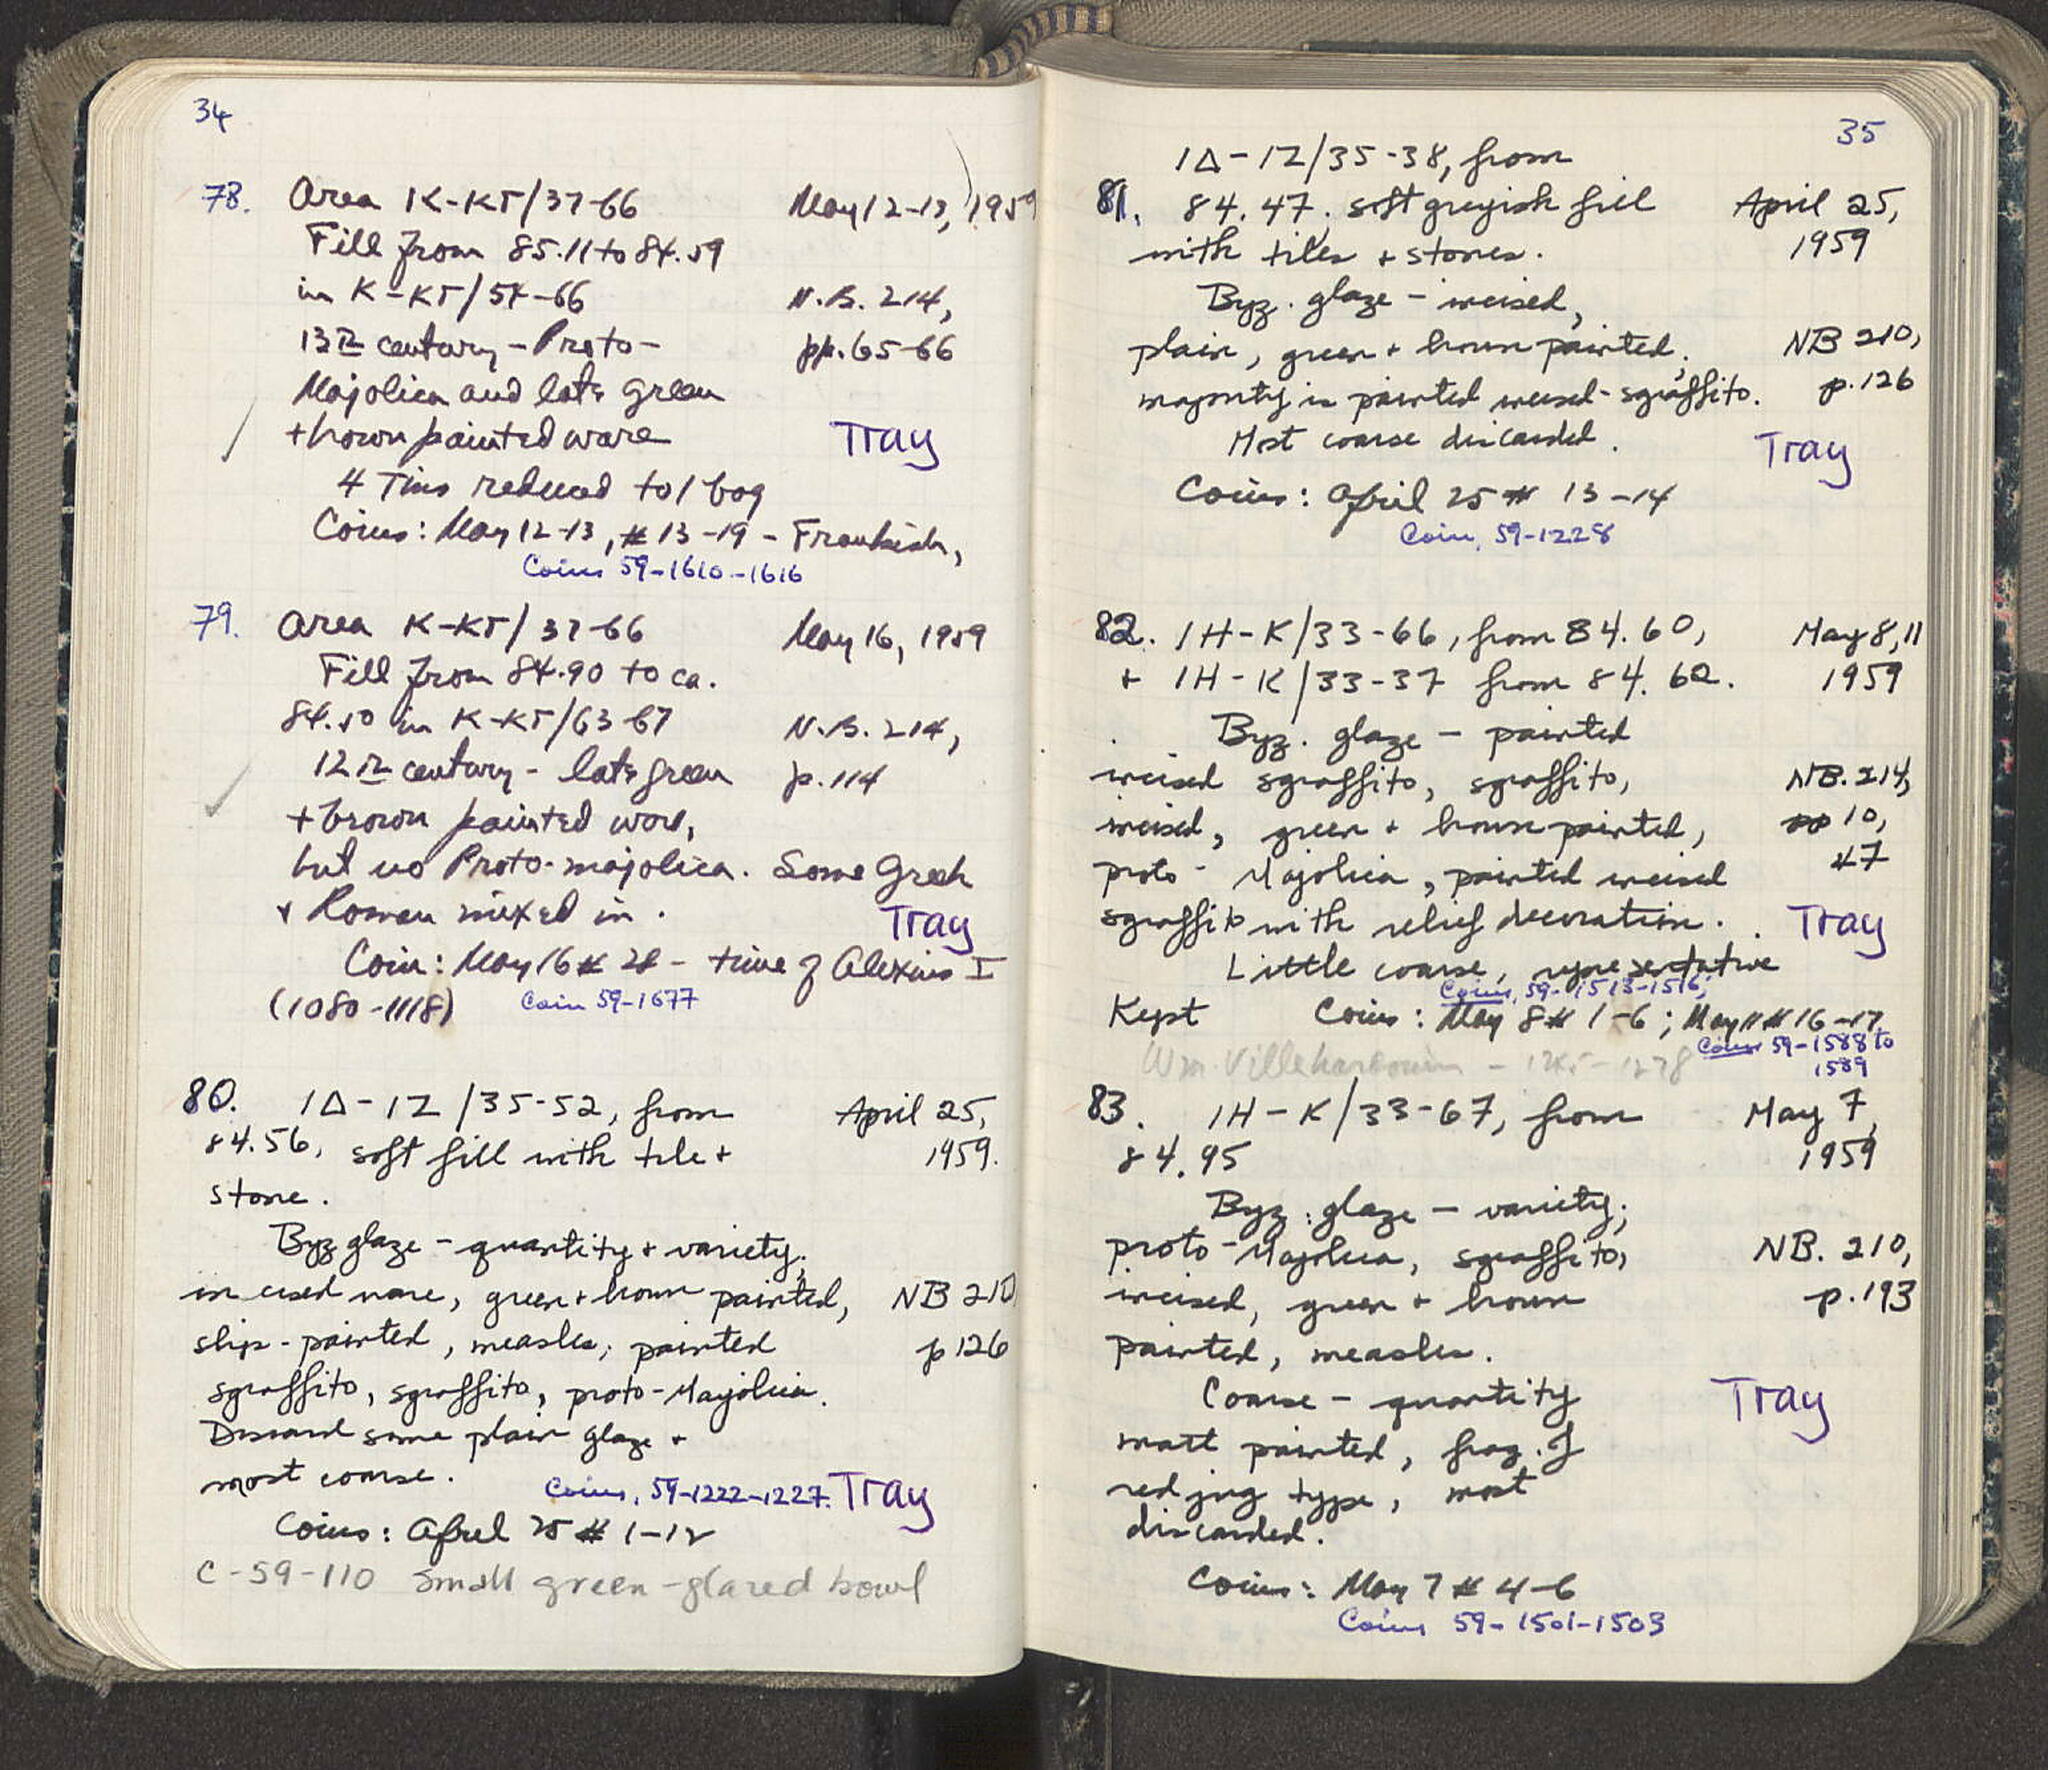 34
78. Area K-KΓ/37-66 May 12-13, 1959
Fill from 85.11 to 84.59
in K-KΓ/54-66 N.B. 214,
13th century - Proto- pp. 65-66
Majolica and late green
+ brown painted ware Tray
4 Tins reduced to 1 bag
Coins: May 12-13, # 13-19 - Frankish,
Coins 59-1610-1616
79. Area K-KΓ/37-66 May 16, 1959
Fill from 84.90 to ca.
84.50 in K-KΓ/63-67 N.B. 214,
12th century - late green p. 114
+ brown painted ware,
but no Proto-majolica. Some Greek
+ Roman mixed in. Tray
Coin: May 16 # 28 - time of Alexius I
(1080-1118) Coin 59-1677
80. 1Δ-1Z/35-52, from April 25,
84.56, soft fill with tile + 1959.
stone.
Byz glaze - quantity + variety;
incised ware, green + brown painted, NB 210
slip-painted, measles; painted p 126
sgraffito, sgraffito, proto-Majolica.
Discard some plain glaze +
most coarse. Coins, 59-1222-1227. Tray
Coins: April 25 # 1-12
C-59-110 small green-glazed bowl
35
1Δ-1Z/35-38, from
81. 84.47. soft greyish fill April 25,
with tiles + stones. 1959
Byz. glaze - incised,
plain, green + brown painted; NB 210,
majority is painted incised-sgraffito. p. 126
Most coarse discarded. Tray
Coins: April 25 # 13-14
Coin, 59-1228
82. 1H-K/33-66, from 84.60, May 8, 11
+ 1H-K/33-37 from 84.60. 1959
Byz. glaze - painted
incised sgraffito, sgraffito, NB. 214,
incised, green + brown painted, pp 10,
proto-Majolica, painted incised 47
sgraffito with relief decoration. Tray
Little coarse, representative
Coins, 59-1513-1516;
Kept Coins: May 8 # 1-6; May 11 # 16-17
Coins 59-1588 to
1589
Wm. Villehardouin - 1245-1278
83. 1H-K/33-67, from May 7,
84.95 1959
Byz. glaze - variety;
proto-Majolica, sgraffito, NB. 210,
incised, green + brown p. 193
painted, measles.
Coarse - quantity Tray
matt painted, frag. of
red jug type, most
discarded.
Coins: May 7 # 4-6
Coins 59-1501-1503